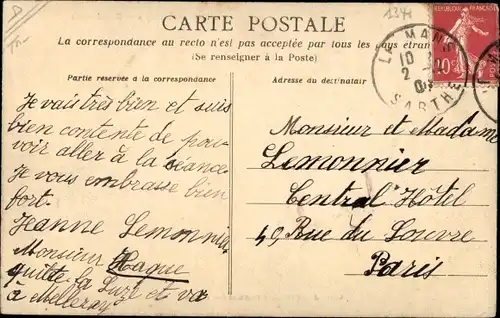 1341
CARTE POSTALE
La correspondance au recto n'est pas acceptée par tous les pays étran
(Se renseigner à la Poste)
Partie réservée à la correspondance
Je vais très bien et suis
bien contente de pou-
voir aller à la séance
Je vous embrasse bien
fort.
Jeanne Lemonnier
Monsieur Hague
quitte la Suze et va
à Melleray
Adresse du destinataire
Monsieur et Madame
Lemonnier
Central Hôtel
49 Rue du Louvre
Paris
REPUBLIQUE FRANÇAISE
10c
LE MANS
SARTHE